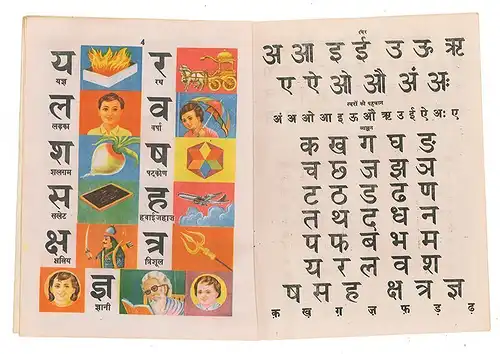 4
य र
यज्ञ रथ
ल व
लड़का वर्षा
श ष
शलगम षट्कोण
स ह
सलेट हवाईजहाज
क्ष त्र
क्षत्रिय त्रिशूल
ज्ञ
ज्ञानी
स्वर
अ आ इ ई उ ऊ ऋ
ए ऐ ओ औ अं अः
स्वरों की पहचान
अं अ ओ आ इ ऊ औ ऋ उ ई ऐ अः ए
व्यञ्जन
क ख ग घ ङ
च छ ज झ ञ
ट ठ ड ढ ण
त थ द ध न
प फ ब भ म
य र ल व श
ष स ह क्ष त्र ज्ञ
क़ ख़ ग़ ज़ फ़ ड़ ढ़